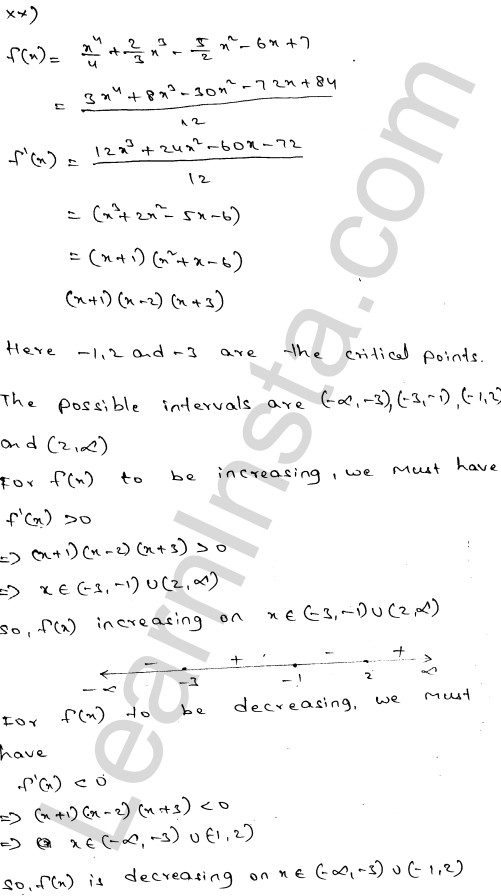 xx)
f(x) = x⁴/4 + 2/3 x³ - 5/2 x² - 6x + 7
= 3x⁴ + 8x³ - 30x² - 72x + 84 / 12
f'(x) = 12x³ + 24x² - 60x - 72 / 12
= (x³ + 2x² - 5x - 6)
= (x+1) (x² + x - 6)
(x+1) (x-2) (x+3)
Here -1, 2 and -3 are the critical points.
The possible intervals are (-∞, -3), (-3, -1), (-1, 2)
and (2, ∞)
For f(x) to be increasing, we must have
f'(x) > 0
=> (x+1) (x-2) (x+3) > 0
=> x ∈ (-3, -1) ∪ (2, ∞)
So, f(x) increasing on x ∈ (-3, -1) ∪ (2, ∞)
- + - +
-∞ -3 -1 2 ∞
For f(x) to be decreasing, we must
have
f'(x) < 0
=> (x+1) (x-2) (x+3) < 0
=> x ∈ (-∞, -3) ∪ (-1, 2)
So, f(x) is decreasing on x ∈ (-∞, -3) ∪ (-1, 2)
LearnInsta.com